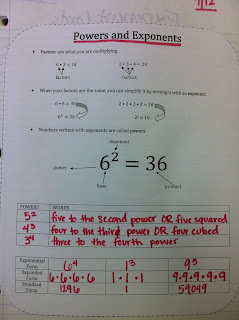 7/12
Powers and Exponents
• Factors are what you are multiplying
6 • 3 = 18 2 × 3 × 4 = 24
factors factors
• When your factors are the same, you can simplify it by writing it with an exponent.
6 • 6 = 36 2 • 2 • 2 • 2 = 16
6² = 36 2⁴ = 16
• Numbers written with exponents are called powers.
exponent
power 6² = 36
base product
POWERS WORDS
5² five to the second power OR five squared
4³ four to the third power OR four cubed
3⁴ three to the fourth power
Exponential Form 6⁴ 1³ 9⁵
Expanded Form 6•6•6•6 1•1•1 9•9•9•9•9
Standard Form 1296 1 59049